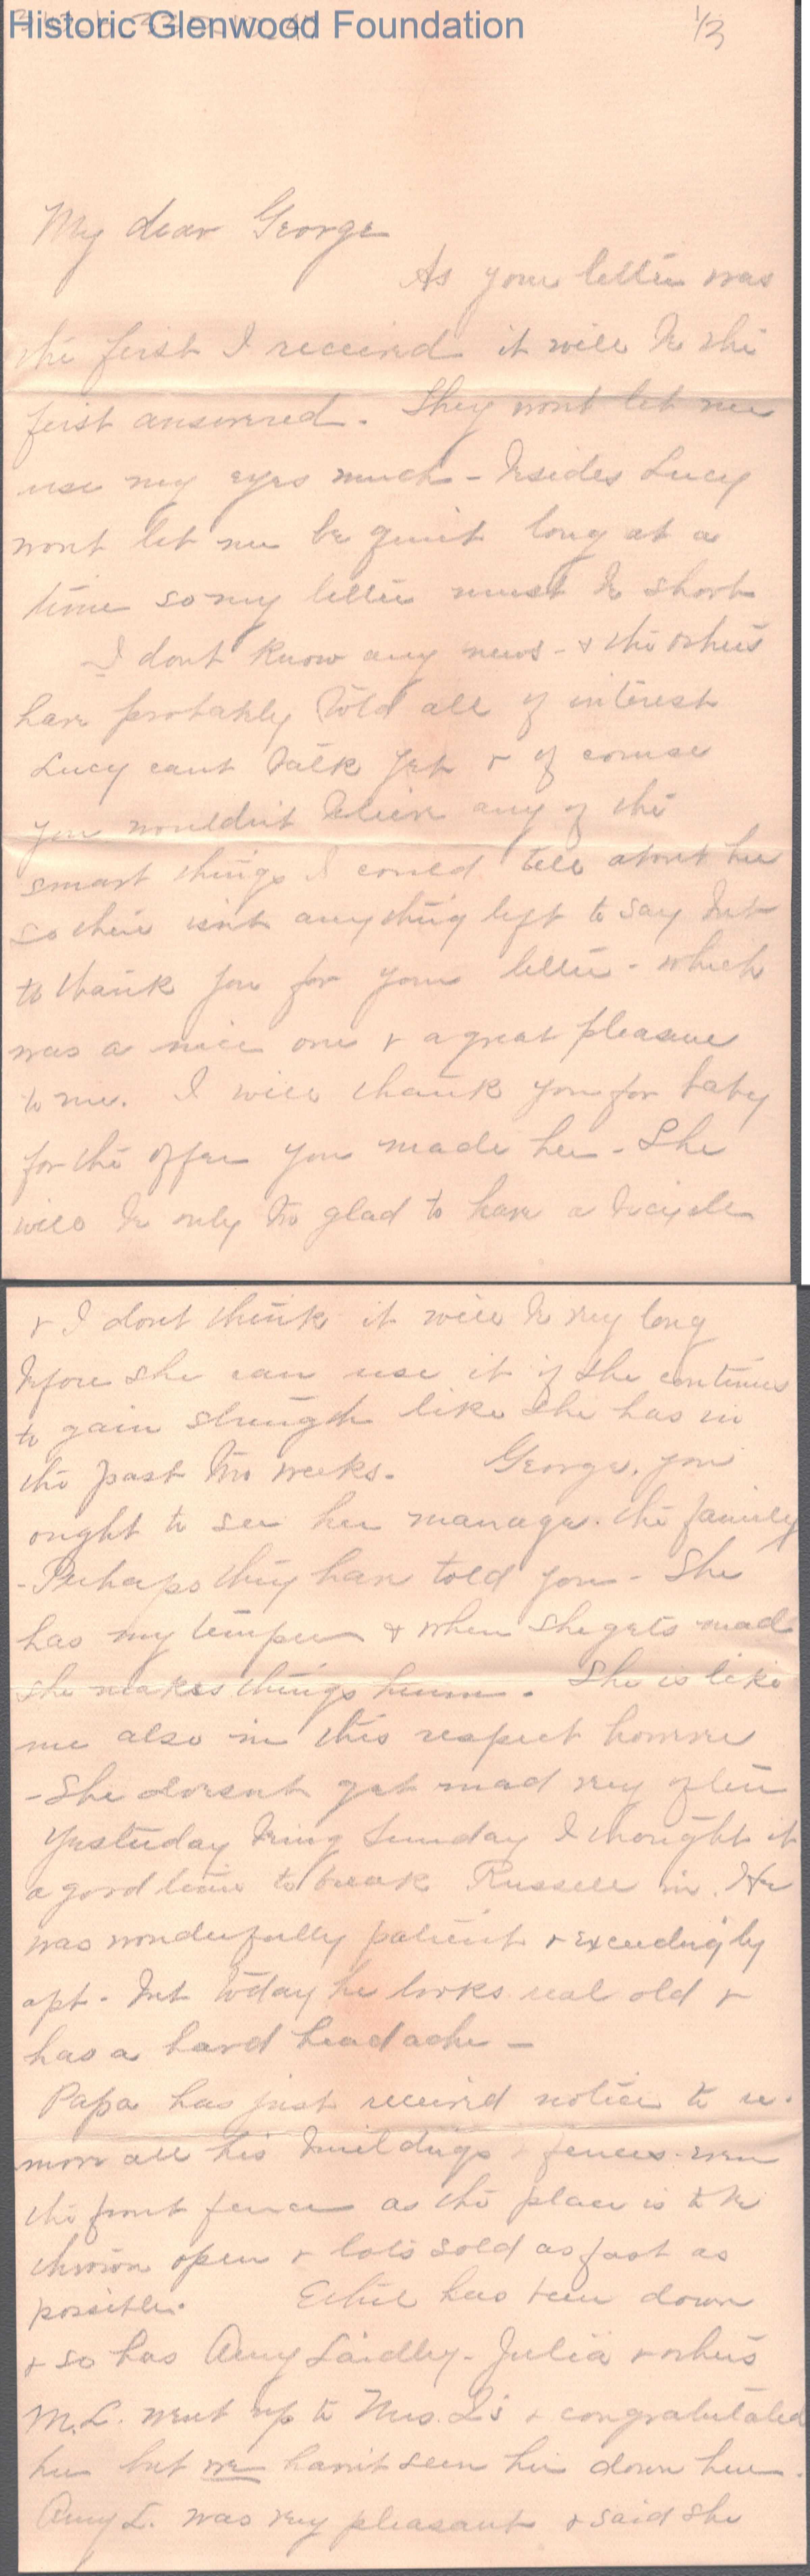 Historic Glenwood Foundation
1/3
My dear George
As your letter was
the first I received it will be the
first answered. They wont let me
use my eyes much - besides Lucy
wont let me be quiet long at a
time so my letter must be short
I dont know any news - & the others
have probably told all of interest
Lucy cant talk yet & of course
you wouldn't believe any of the
smart things I could tell about her
so there isnt anything left to say but
to thank you for your letter - which
was a nice one & a great pleasure
to me. I will thank you for baby
for the offer you made her - She
will be only too glad to have a bicycle
& I dont think it will be very long
before she can use it if she continues
to gain strength like she has in
the past two weeks. George, you
ought to see her manage the family
- Perhaps they have told you - She
has my temper & when she gets mad
she makes things hum. She is like
me also in this respect however
- She doesnt get mad very often
Yesterday being Sunday I thought it
a good time to break Russell in. He
was wonderfully patient & exceedingly
apt - but today he looks real old &
has a hard headache -
Papa has just received notice to re-
move all his buildings & fences - even
the front fence as the place is to be
thrown open & lots sold as fast as
possible. Ethel has been down
& so has Amy Laidley - Julia & others
M.L. went up to Mrs. L's & congratulated
her but we havn't seen her down here.
Amy L. was very pleasant & said she